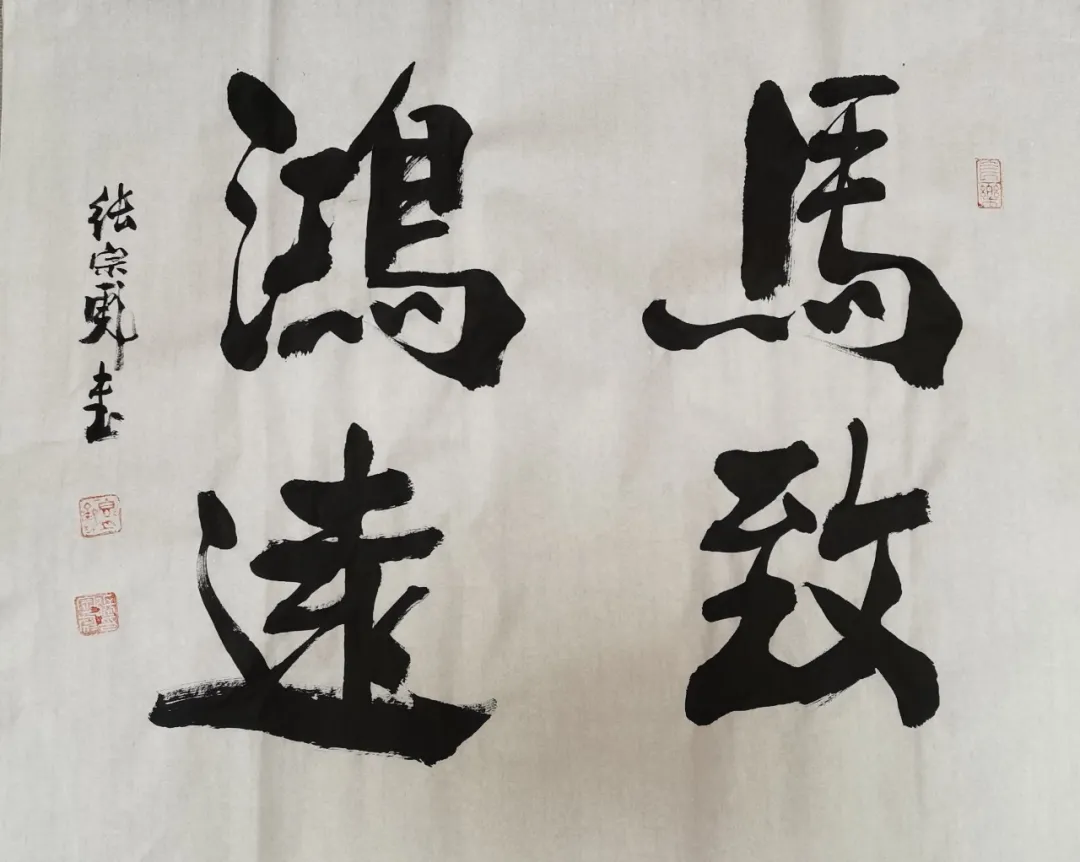 馬致
鴻遠
張宗彪書